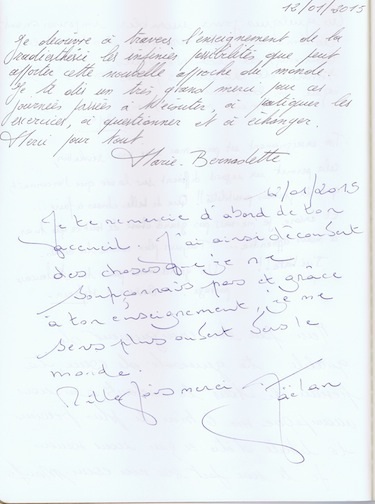 12/01/2015
Je découvre à travers l'enseignement de la
radiesthésie les infinies possibilités que peut
apporter cette nouvelle approche du monde.
Je te dis un très grand merci pour ces
journées passées à t'écouter, à pratiquer les
exercices, à questionner et à échanger.
Merci pour tout
Marie-Bernadette
12/01/2015
Je te remercie d'abord de ton
accueil. J'ai ainsi découvert
des choses que je ne
soupçonnais pas et grâce
à ton enseignement, je me
sens plus ouvert vers le
monde.
Mille fois merci